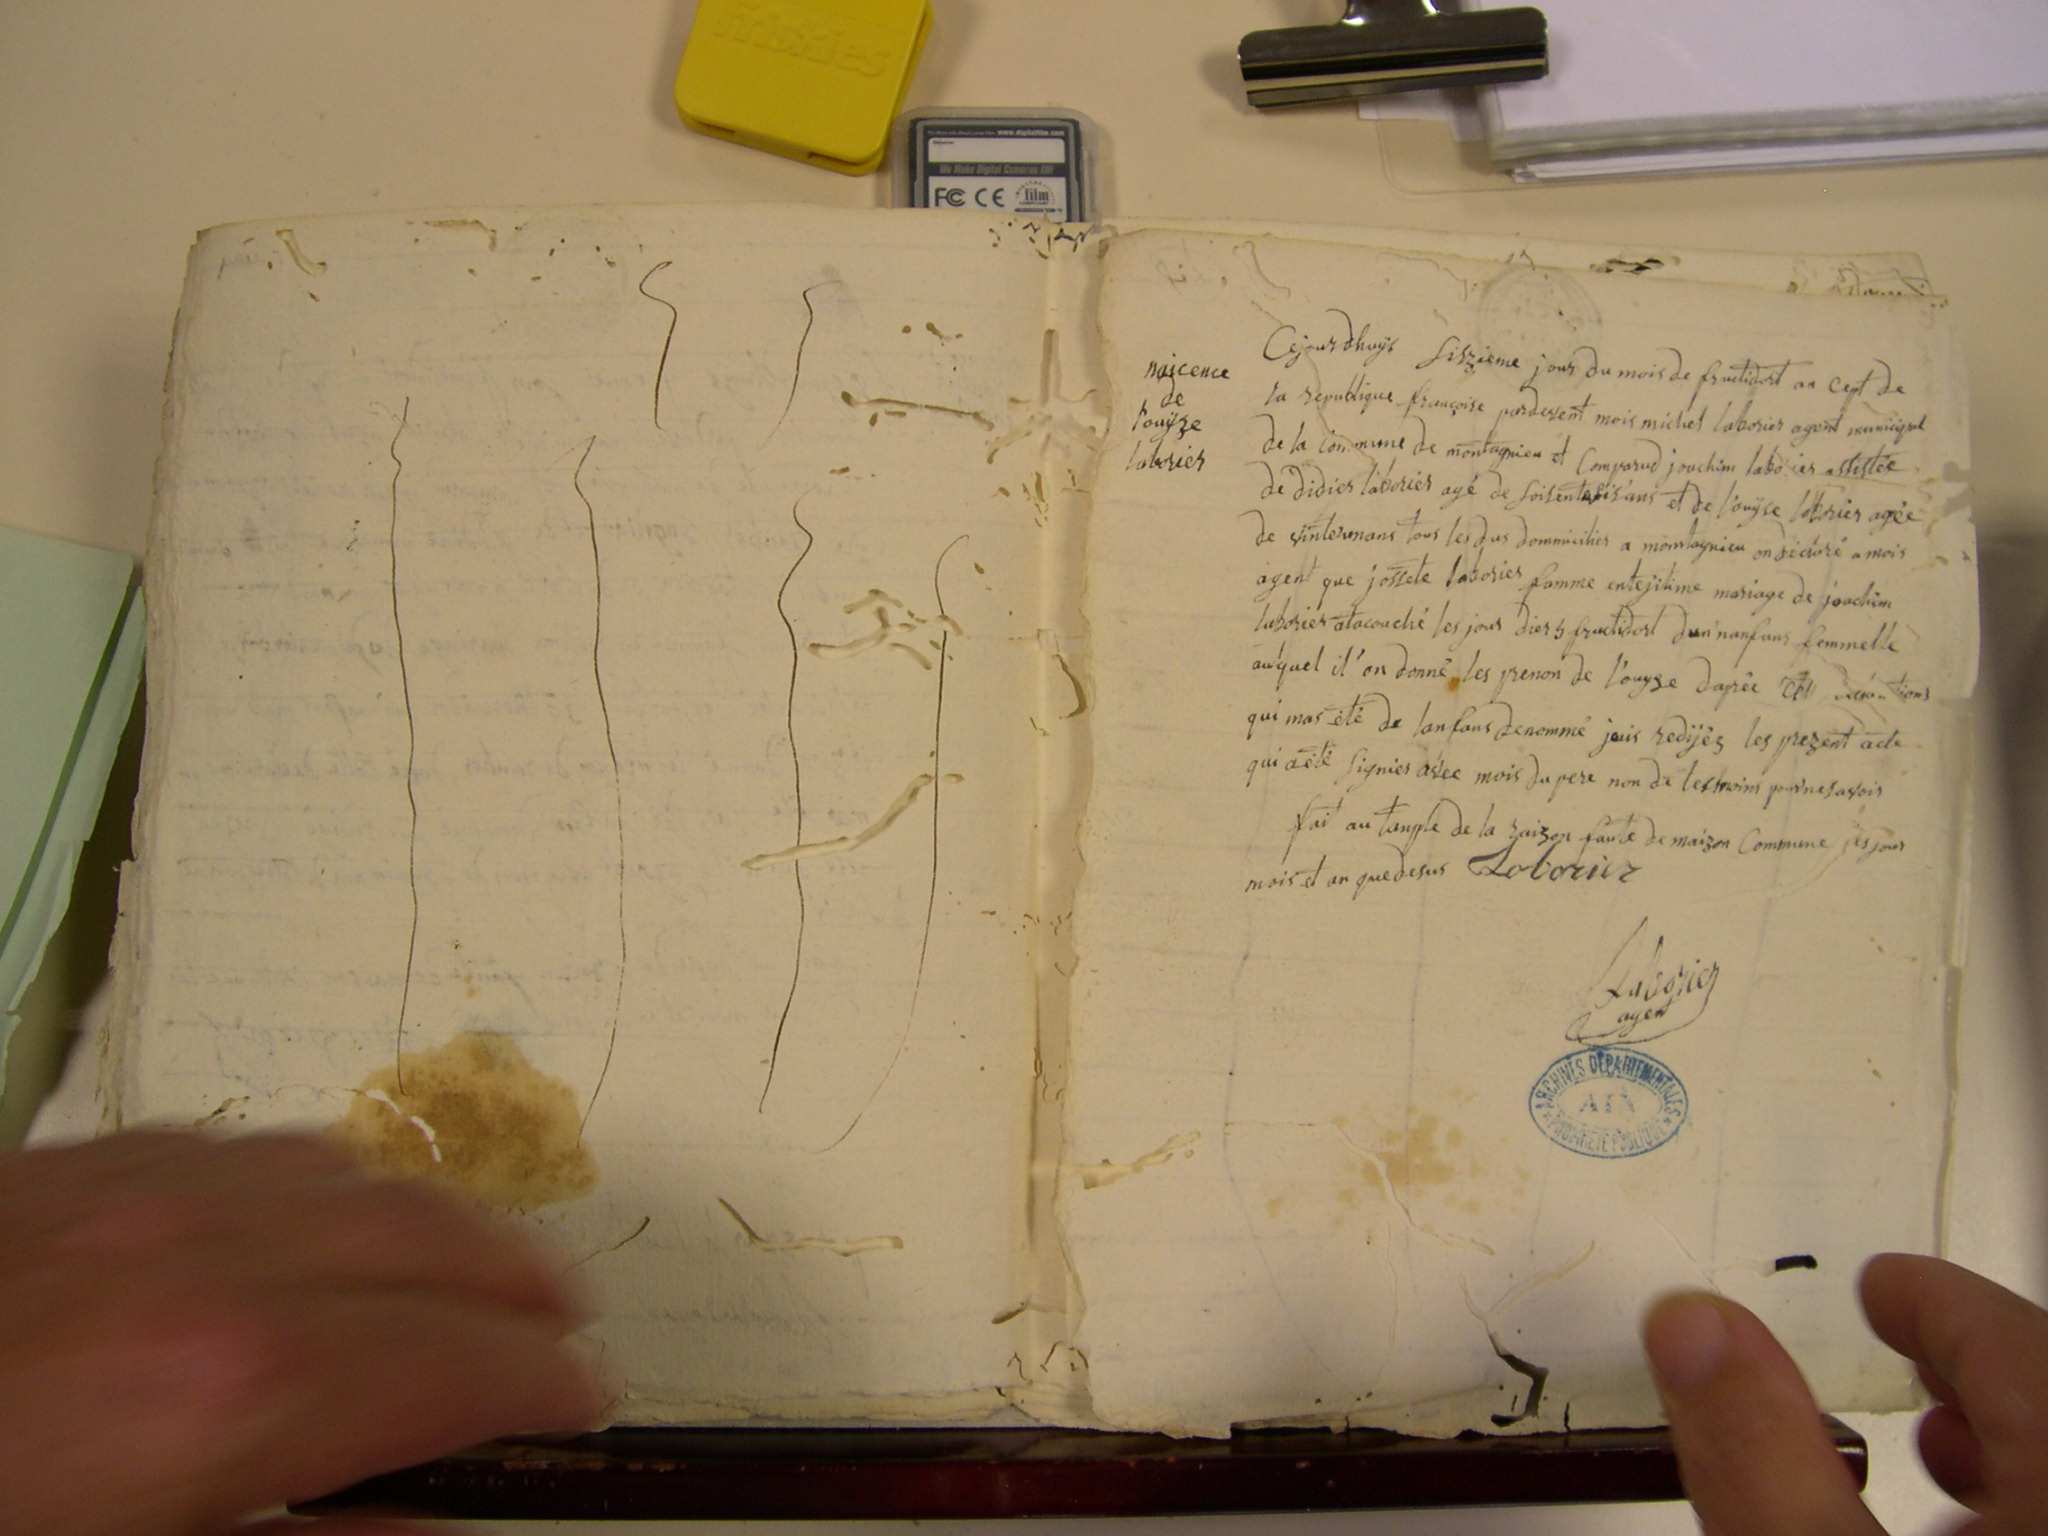 friskies
www.digitalfilm.com
We Make Digital Cameras
FC CE film
naicence
de
l'ouÿze
laborier
Cejourdhuÿs siszieme jour du mois de fructidort an cept de
la republique françoise pardevent mois michel laborier agent municipal
de la Commune de montagnieu et Comparud jouchim laborier assistée
de didier laborier agé de soisentesis ans et de l'ouÿse laborier agée
de vinterunans tous les dus dommicilier a montagnieu on déclaré a mois
agent que jossete laborier famme entejitime mariage de joachim
laborier atacouché les jour diers fructidort dun'nanfans femmelle
auquel il'on donné les prenon de l'ouyze daprée
qui mas été de lanfans denommé jeuis redijés les prezent acte
qui aété signier avec mois du pere non de tesmoins pournesavoir
fait au tanple de la raizon faute de maizon Commune jes jour
mois et an quedesus Laborier
Laborier
agen
ARCHIVES DÉPARTEMENTALES
AIN
PROPRIÉTÉ PUBLIQUE